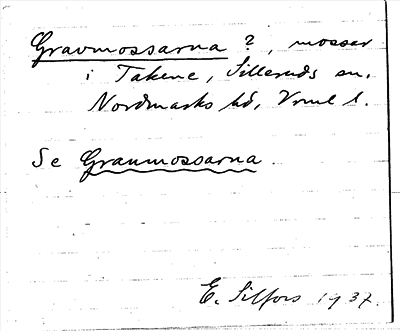 Gravmossarna ?, mossar
i Takene, Silleruds sn,
Nordmarks hd, Vrml l.
Se Granmossarna.
E. Silfors 1937.